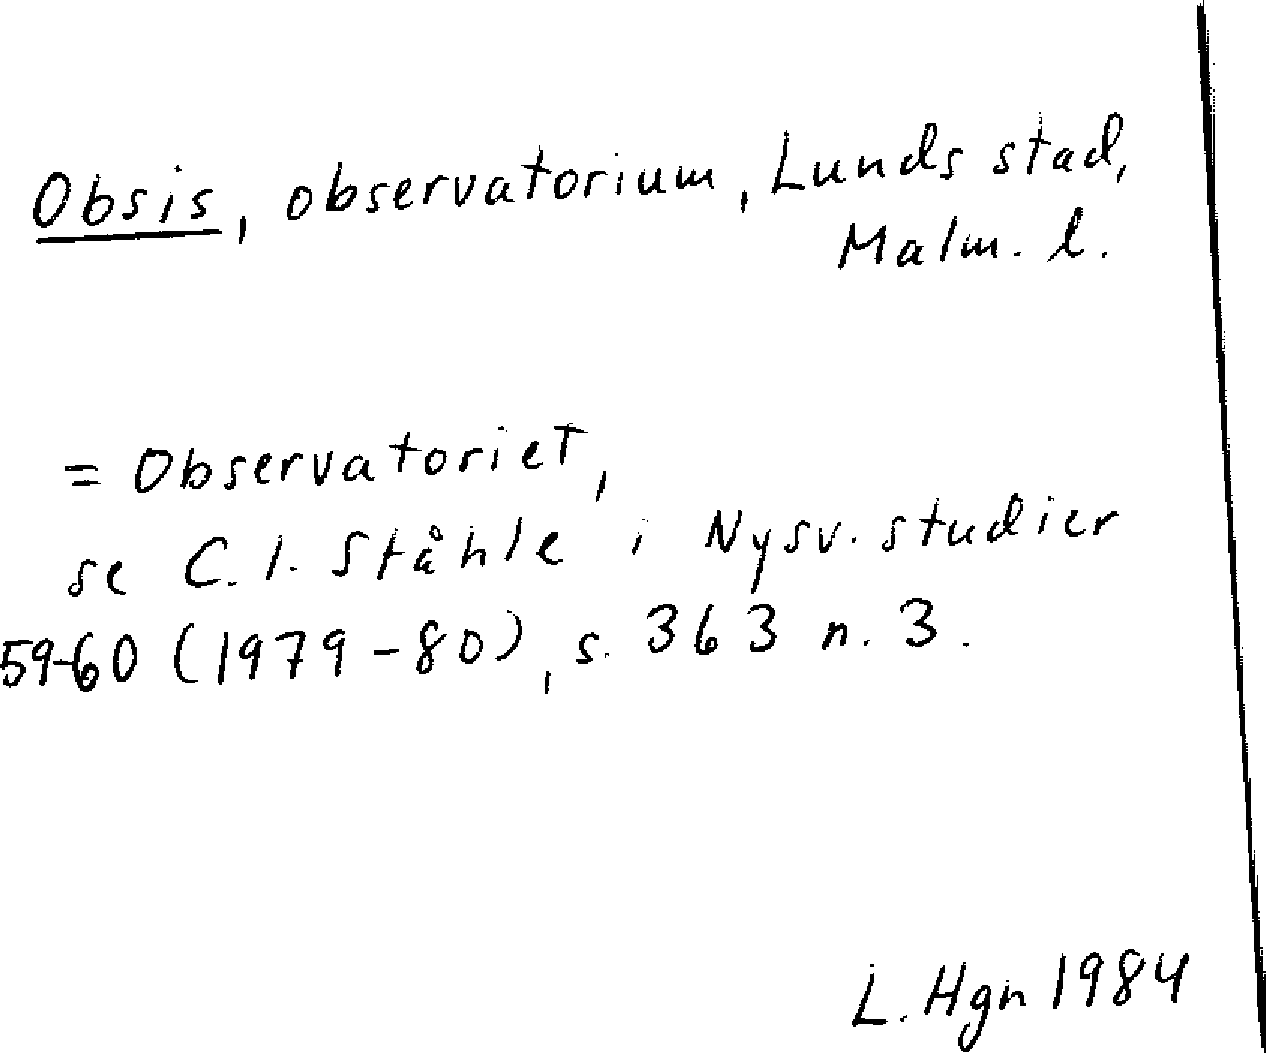 Obsis, observatorium, Lunds stad,
Malm. l.
= Observatoriet,
se C. I. Ståhle i Nysv. studier
59-60 (1979-80), s. 363 n. 3.
L. Hgn 1984